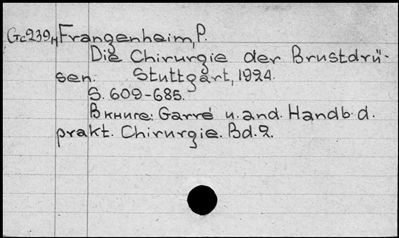 Gc239H Frangenheim, P.
Die Chirurgie der Brustdrü-
sen. Stuttgart, 1924.
S. 609-685.
В книге: Garré u. and. Handb. d.
prakt. Chirurgie. Bd. 2.